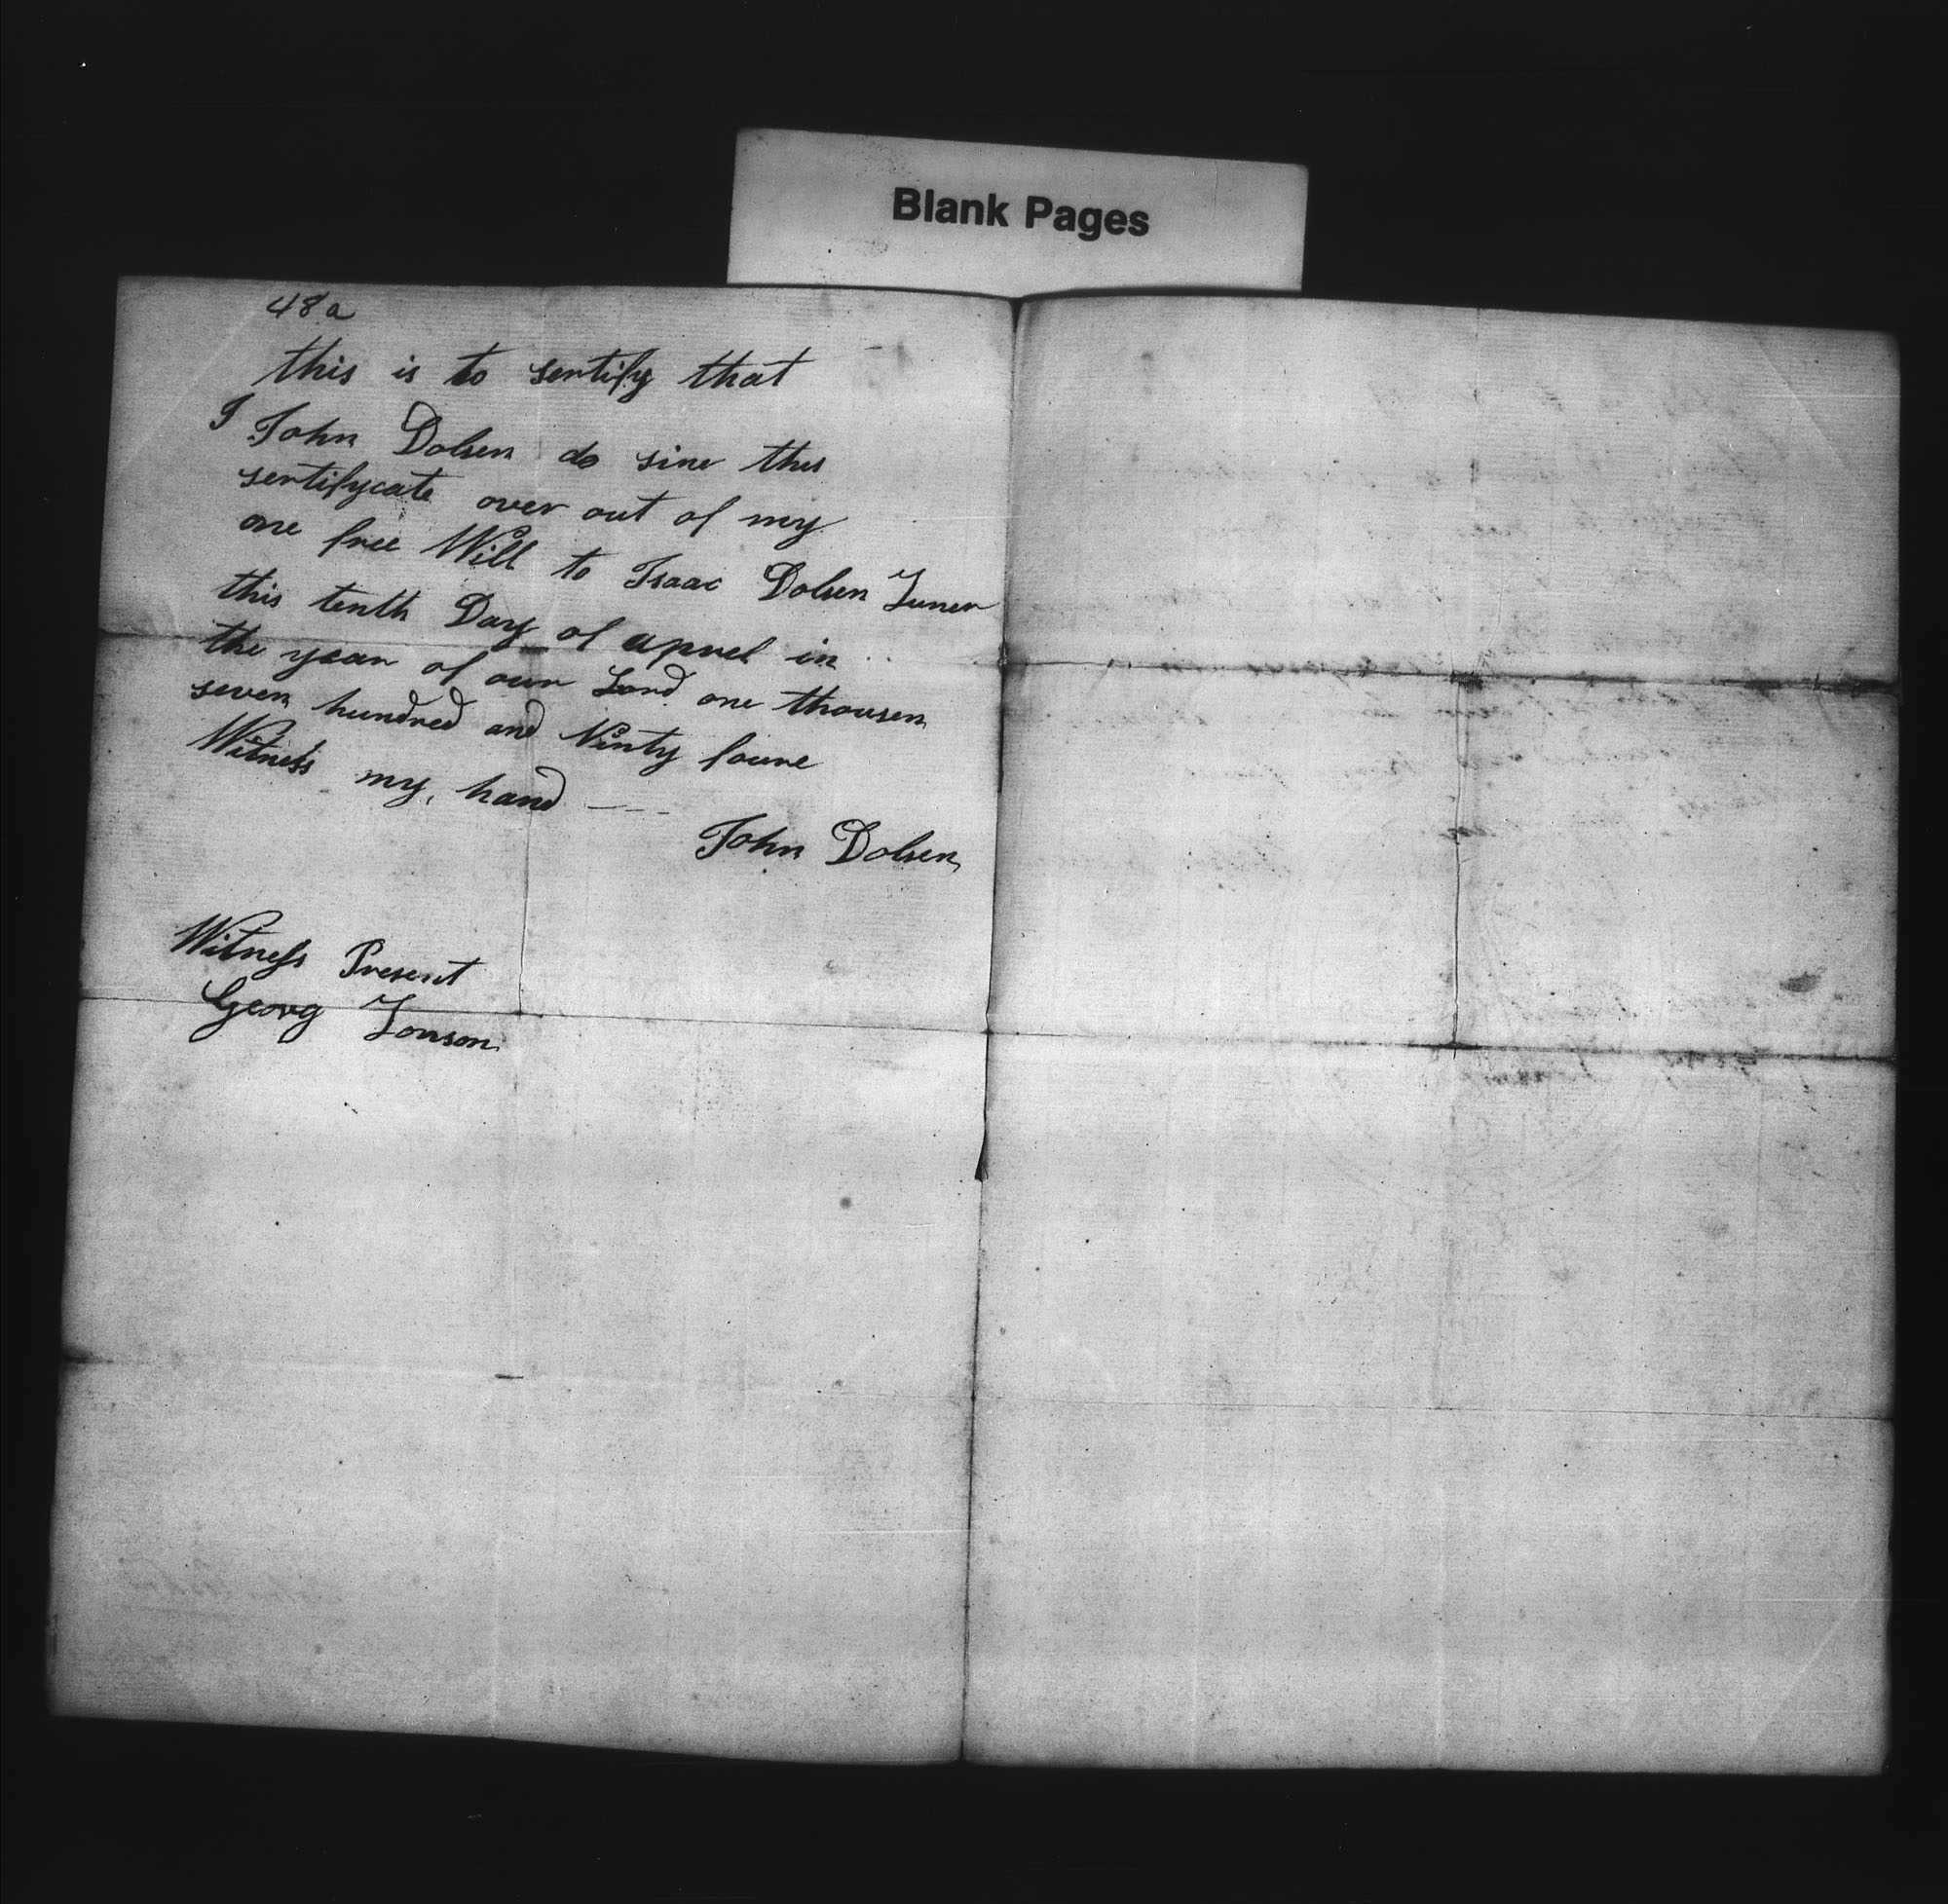 Blank Pages
48a
this is to sertify that
I John Dolsen do sine this
sertifycate over out of my
one free Will to Isaac Dolsen Juner
this tenth Day of aprel in
the year of our Lord one thousen
seven hundred and Ninty foure
Witness my hand
John Dolsen
Witness Present
Georg Jonson